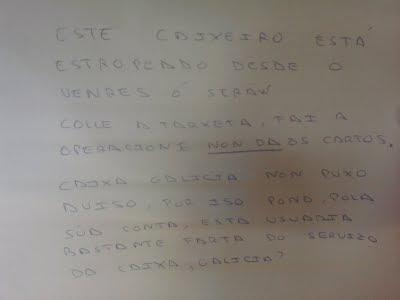 ESTE CAIXEIRO ESTÁ
ESTROPEADO DESDE O
VENRES Ó SERAN
COLLE A TARXETA, FAI A
OPERACIONE NON DA OS CARTOS.
CAIXA GALICIA NON PUXO
AVISO, POR ISO POÑO, POLA
SÚA CONTA, ESTA USUARIA
BASTANTE FARTA DO SERVIZO
DA CAIXA, GALICIA?